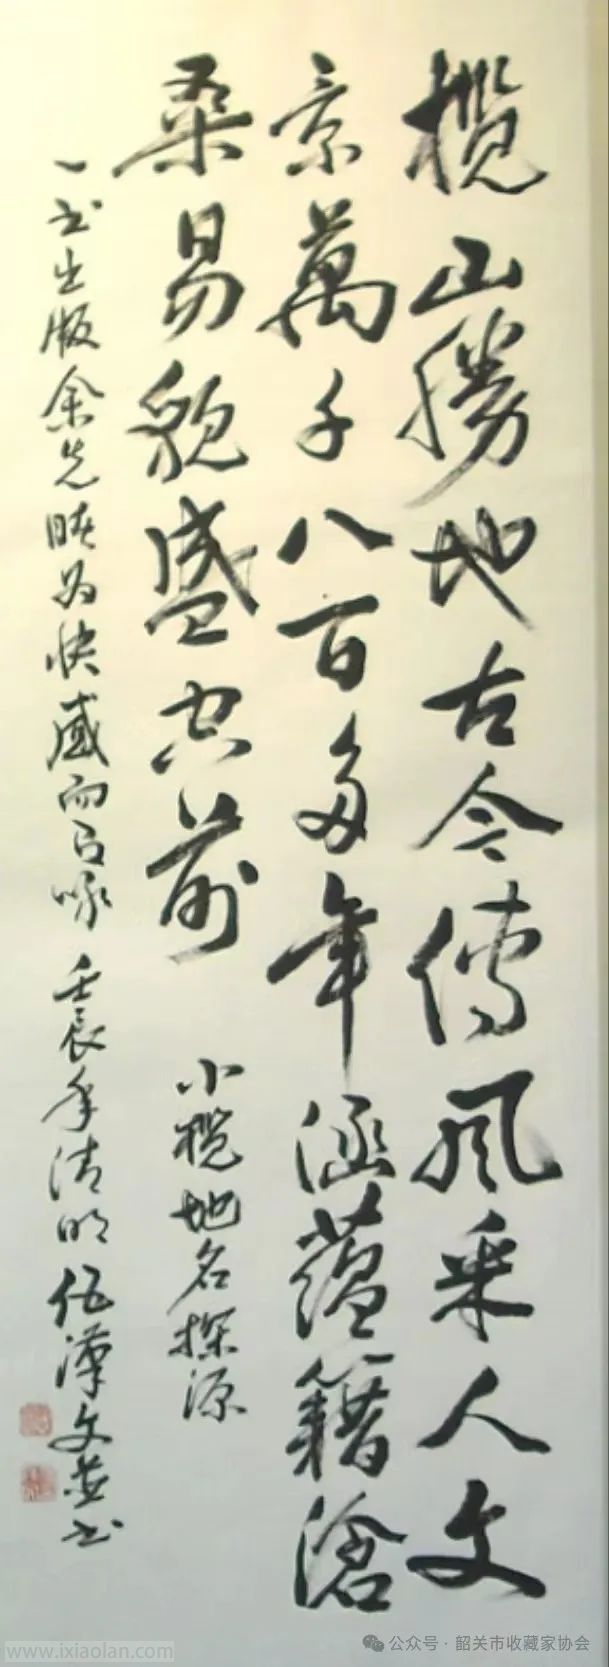 榄山勝地古今傳風采人文
景萬千八百多年涵蕴籍滄
桑易貌盛空前
小榄地名探源
一书出版余先睹为快感而口咏 壬辰年清明 伍漢文并书
www.ixiaolan.com
公众号·韶关市收藏家协会